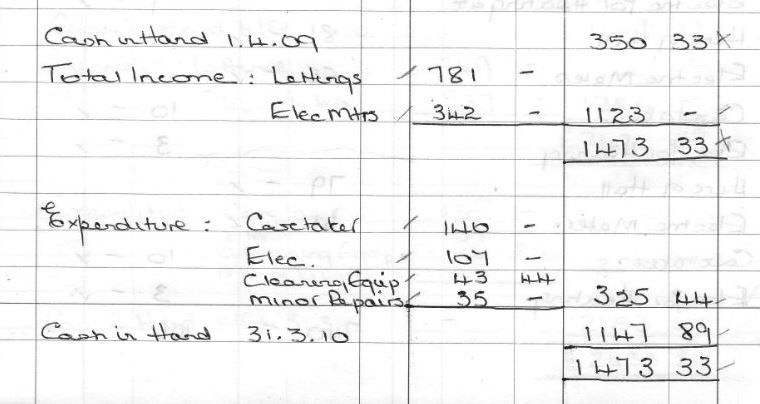 Cash in Hand 1.4.09 350 33
Total Income : Lettings 781 -
Elec Mtrs 342 - 1123 -
1473 33
Expenditure : Caretaker 140 -
Elec. 107 -
Cleaning Equip 43 44
Minor Repairs 35 - 325 44
Cash in Hand 31.3.10 1147 89
1473 33